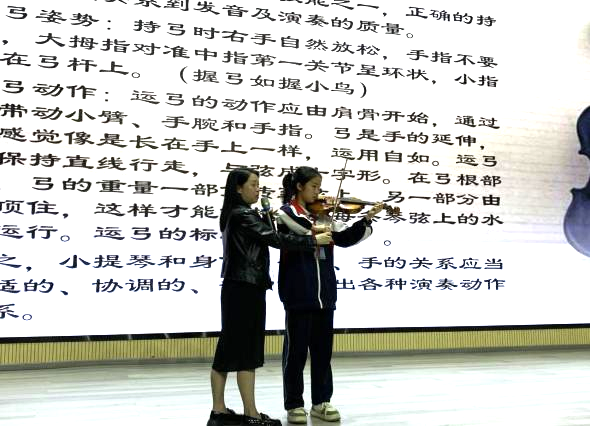 能之一，正确的持
系到发音及演奏的质量。
弓姿势：持弓时右手自然放松，手指不要
，大拇指对准中指第一关节呈环状，小指
在弓杆上。（握弓如握小鸟）
弓动作：运弓的动作应由肩骨开始，通过
带动小臂、手腕和手指。弓是手的延伸，
感觉像是长在手上一样，运用自如。运弓
保持直线行走，与弦成 字形。在弓根部
弓的重量一部 上，另一部分由
顶住，这样才能 琴弦上的水
运行。运弓的标 。
之，小提琴和身 、手的关系应当
适的、协调的、 出各种演奏动作
系。